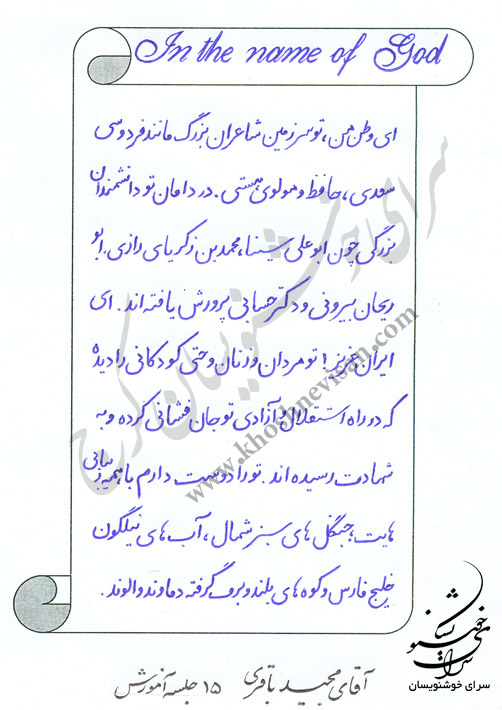 In the name of God
ای وطن من، تو سرزمین شاعران بزرگ مانند فردوسی
سعدی، حافظ و مولوی هستی. در دامان تو دانشمندان
بزرگی چون ابوعلی سینا، محمد بن زکریای رازی، ابو
ریحان بیرونی و دکتر حسابی پرورش یافته اند. ای
ایران عزیز! تو مردان و زنان و حتی کودکانی را دیده
که در راه استقلال و آزادی تو جان فشانی کرده و به
شهادت رسیده اند. تو را دوست دارم با همه زیبایی
هایت، جنگل های سبز شمال، آب های نیلگون
خلیج فارس و کوه های بلند و برف گرفته دماوند و الوند.
سرای خوشنویسان کرج
www.khoshnevisan.com
سرای خوشنویسان
آقای مجید باقری ۱۵ جلسه آموزش